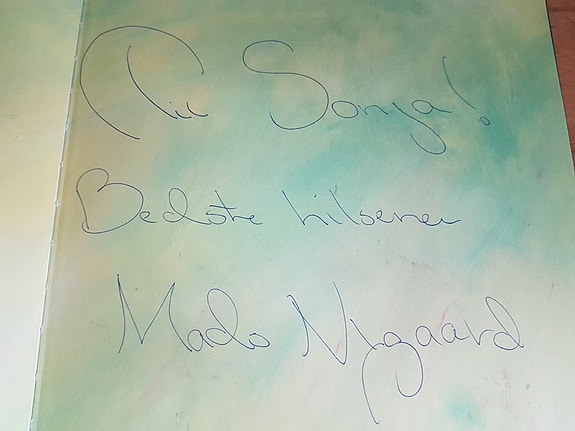 Til Sonja!
Bedste hilsener
Mads Nygaard